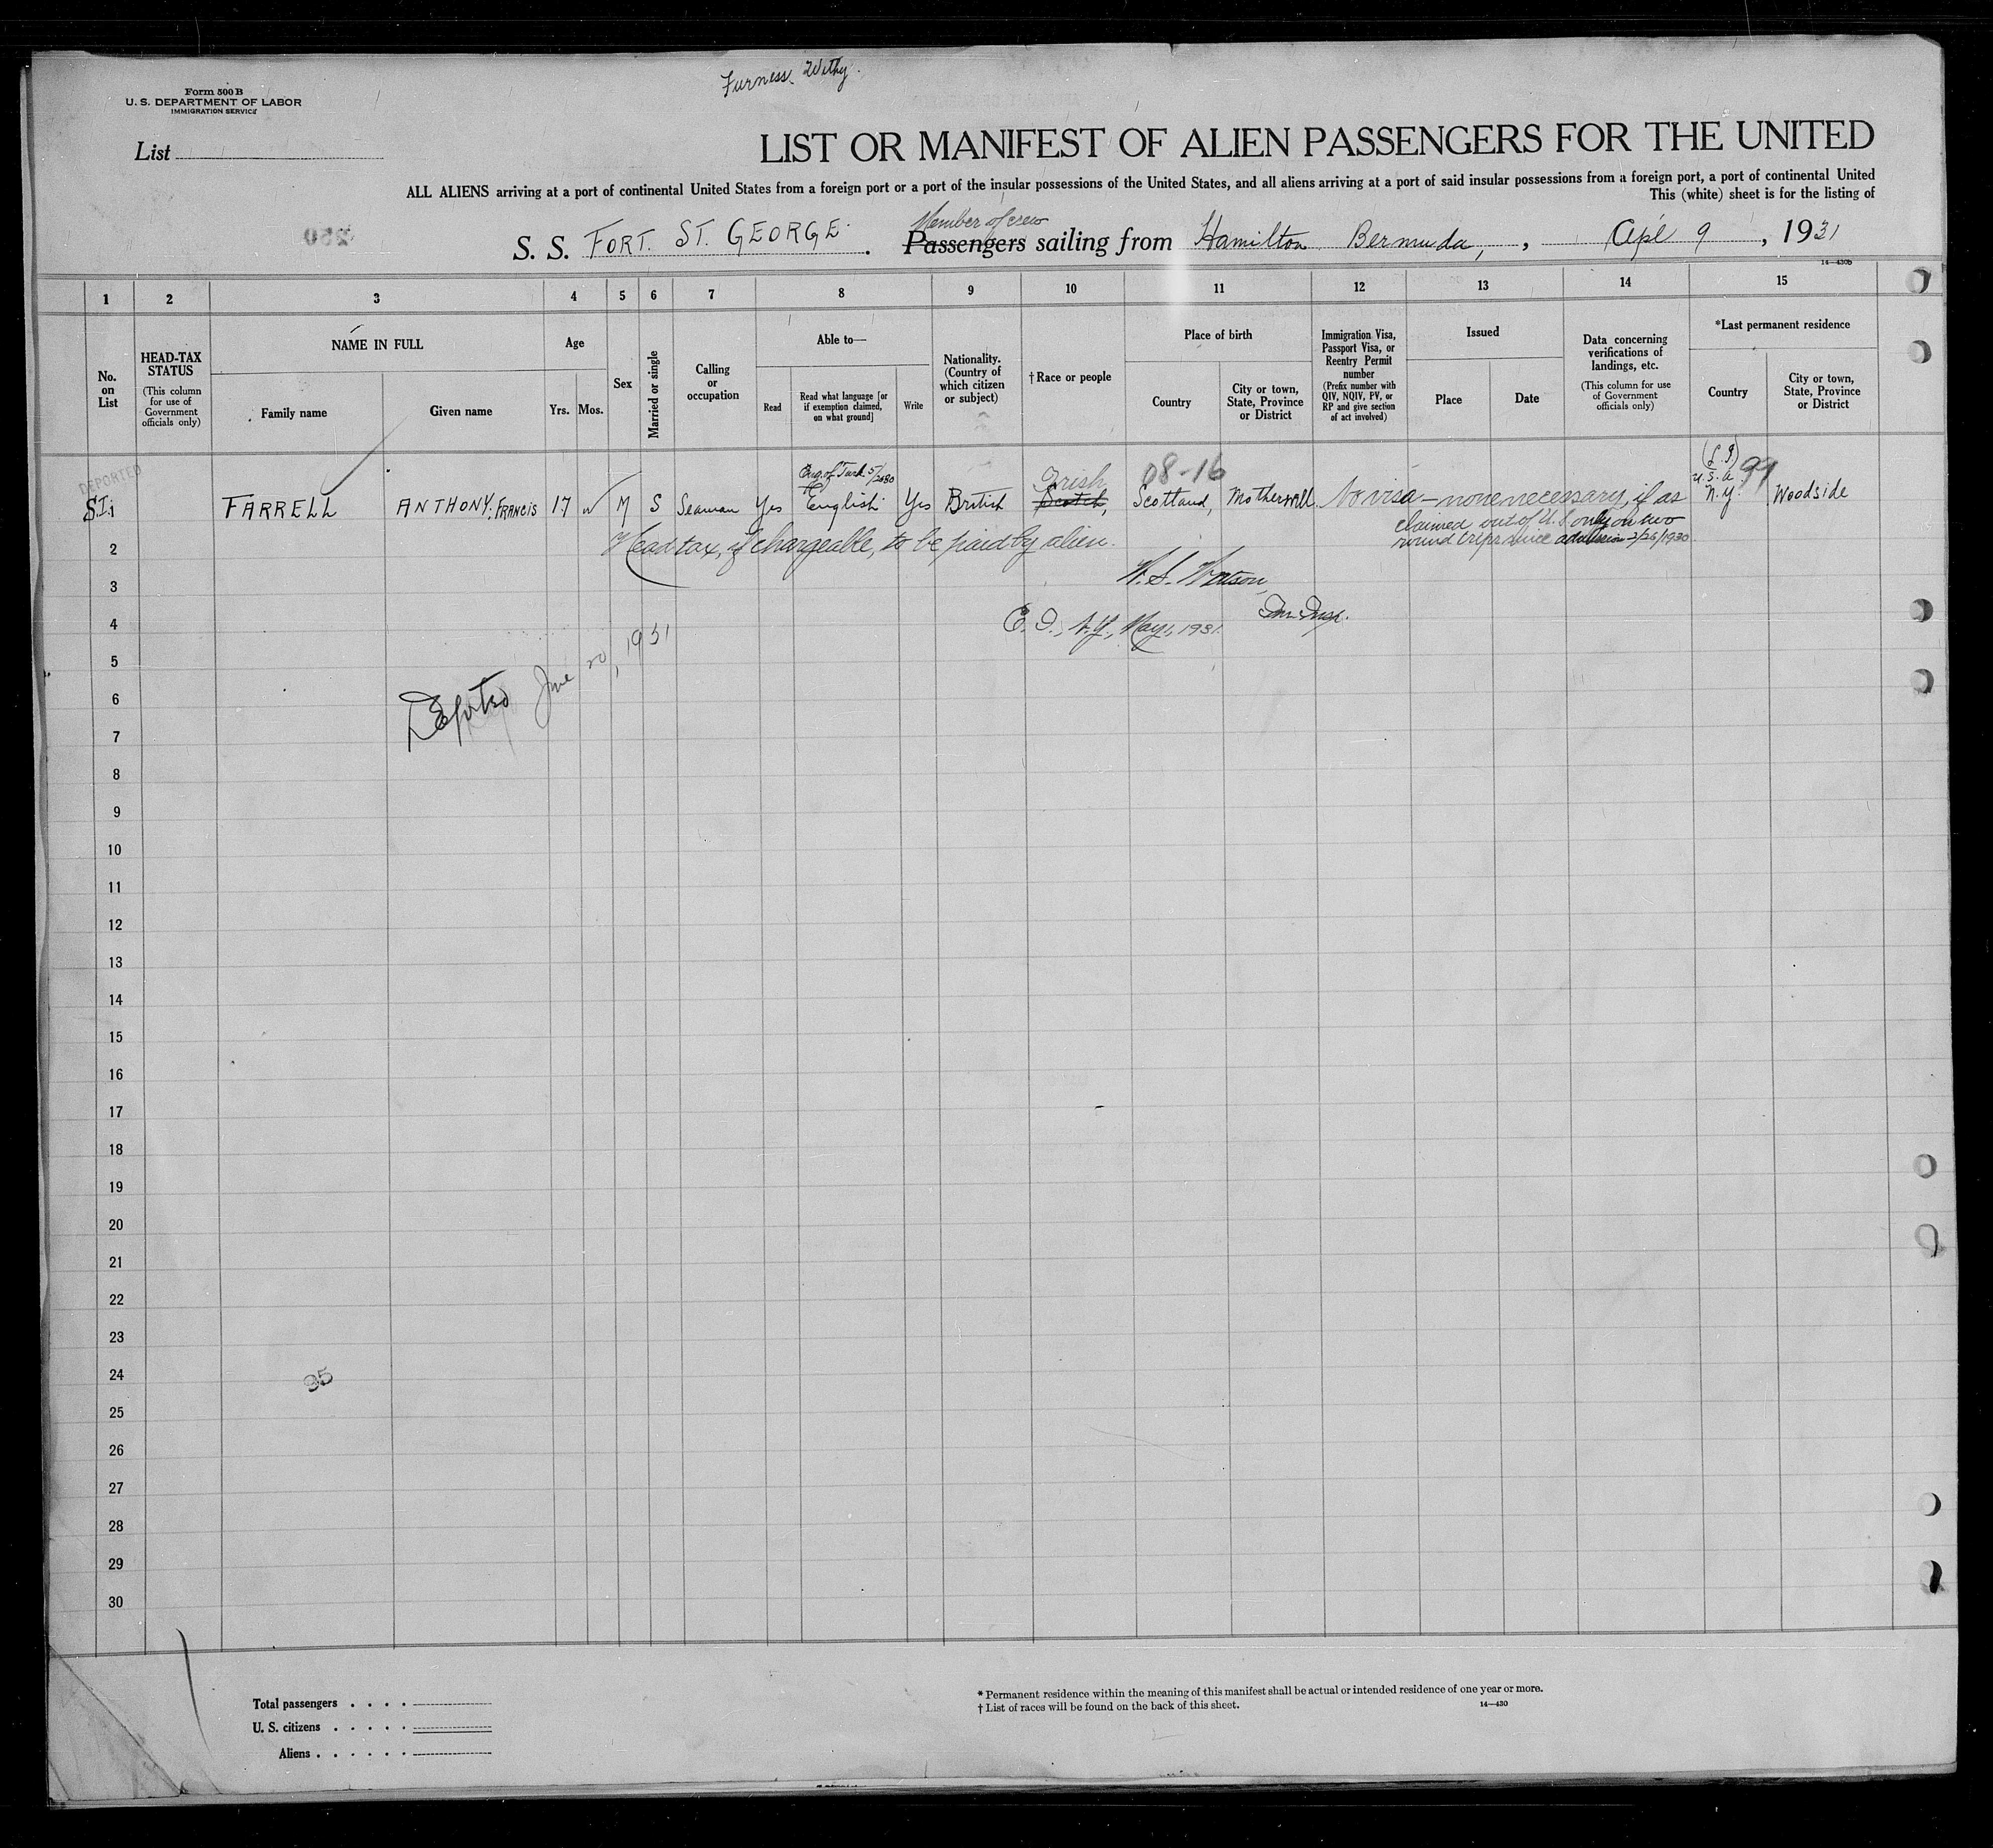 Furness Withy.
Form 500 B
U. S. DEPARTMENT OF LABOR
IMMIGRATION SERVICE
List
LIST OR MANIFEST OF ALIEN PASSENGERS FOR THE UNITED
ALL ALIENS arriving at a port of continental United States from a foreign port or a port of the insular possessions of the United States, and all aliens arriving at a port of said insular possessions from a foreign port, a port of continental United
This (white) sheet is for the listing of
Member of crew
S. S. FORT. ST. GEORGE. Passengers sailing from Hamilton Bermuda, , Apl 9 , 1931
14—430b
1 2 3 4 5 6 7 8 9 10 11 12 13 14 15
No. on List
HEAD-TAX STATUS
(This column for use of Government officials only)
NAME IN FULL
Family name
Given name
Age
Yrs.
Mos.
Sex
Married or single
Calling or occupation
Able to—
Read
Read what language [or if exemption claimed, on what ground]
Write
Nationality. (Country of which citizen or subject)
† Race or people
Place of birth
Country
City or town, State, Province or District
Immigration Visa, Passport Visa, or Reentry Permit number
(Prefix number with QIV, NQIV, PV, or RP and give section of act involved)
Issued
Place
Date
Data concerning verifications of landings, etc.
(This column for use of Government officials only)
*Last permanent residence
Country
City or town, State, Province or District
DEPORTED
Irish 08-16 (L.I.) U.S.A. 99
S.I. 1 FARRELL ANTHONY. FRANCIS 17 M S Seaman Yes English Yes British Scotch, Scotland, Motherwell. No visa—none necessary, if as N.Y. Woodside
claimed out of U.S. only on two
round trips since admission 2/26/1930.
2 Head tax, if chargeable, to be paid by alien.
3 W. S. Watson,
Im. Insp.
4 E. I., N.Y., May 1, 1931.
5
6 Deported June 20, 1931
7
8
9
10
11
12
13
14
15
16
17
18
19
20
21
22
23
24 35
25
26
27
28
29
30
Total passengers . . . .
U. S. citizens . . . . .
Aliens . . . . . .
* Permanent residence within the meaning of this manifest shall be actual or intended residence of one year or more.
† List of races will be found on the back of this sheet.
14—430